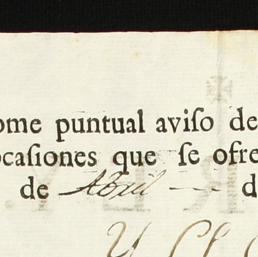 ome puntual aviſo de
ocaſiones que ſe ofre
de Abril d